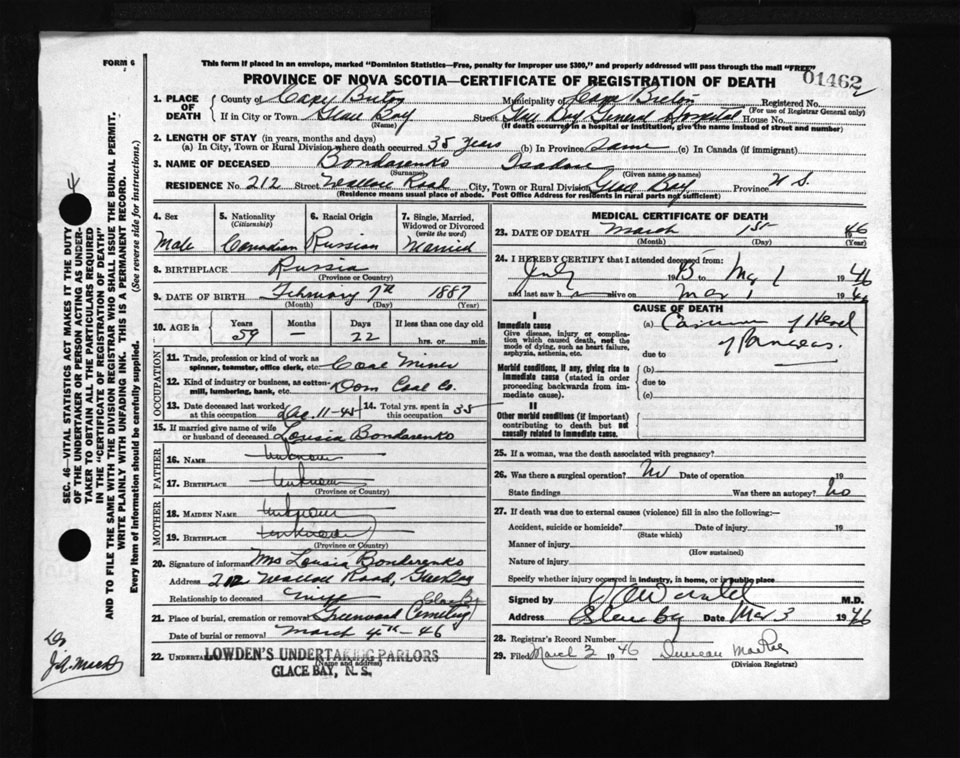 FORM 6
This form if placed in an envelope, marked "Dominion Statistics—Free, penalty for improper use $300," and properly addressed will pass through the mail "FREE"
PROVINCE OF NOVA SCOTIA—CERTIFICATE OF REGISTRATION OF DEATH
01462
1. PLACE OF DEATH
County of Cape Breton Municipality of Cape Breton Registered No.
(For use of Registrar General only)
If in City or Town Glace Bay Street Glace Bay General Hospital House No.
(Name) (If death occurred in a hospital or institution, give the name instead of street and number)
2. LENGTH OF STAY (in years, months and days)
(a) In City, Town or Rural Division where death occurred 35 years (b) In Province same (c) In Canada (if immigrant)
3. NAME OF DECEASED Bondarenko Isadore
(Surname) (Given name or names)
RESIDENCE No. 212 Street Wallace Road City, Town or Rural Division Glace Bay Province N S.
(Residence means usual place of abode. Post Office Address for residents in rural parts not sufficient)
4. Sex
Male
5. Nationality
(Citizenship)
Canadian
6. Racial Origin
Russian
7. Single, Married, Widowed or Divorced
(write the word)
Married
8. BIRTHPLACE Russia
(Province or Country)
9. DATE OF BIRTH February 7th 1887
(Month) (Day) (Year)
10. AGE in
Years Months Days If less than one day old
59 — 22 hrs. or min.
OCCUPATION
11. Trade, profession or kind of work as spinner, teamster, office clerk, etc. Coal Miner
12. Kind of industry or business, as cotton mill, lumbering, bank, etc. Dom Coal Co.
13. Date deceased last worked at this occupation Dec. 11-45
14. Total yrs. spent in this occupation 35
15. If married give name of wife or husband of deceased Louisia Bondarenko
FATHER
16. NAME Unknown
17. BIRTHPLACE Unknown
(Province or Country)
MOTHER
18. MAIDEN NAME Unknown
19. BIRTHPLACE Unknown
(Province or Country)
20. Signature of informant Mrs Louisia Bondarenko
Address 212 Wallace Road, Glace Bay
Relationship to deceased Wife
21. Place of burial, cremation or removal Greenwood Cemetery Glace Bay
Date of burial or removal March 4th - 46
22. UNDERTAKER LOWDEN'S UNDERTAKING PARLORS
(Name and address)
GLACE BAY, N. S.
MEDICAL CERTIFICATE OF DEATH
23. DATE OF DEATH March 1st 46
(Month) (Day) (Year)
24. I HEREBY CERTIFY that I attended deceased from:
July to Mar 1 1946
and last saw h alive on Mar 1 1946
CAUSE OF DEATH
I
Immediate cause
Give disease, injury or complication which caused death, not the mode of dying, such as heart failure, asphyxia, asthenia, etc.
(a) Carcinoma of Head
due to of Pancreas.
Morbid conditions, if any, giving rise to immediate cause (stated in order proceeding backwards from immediate cause).
(b)
due to
(c)
II
Other morbid conditions (if important) contributing to death but not causally related to immediate cause.
25. If a woman, was the death associated with pregnancy?
26. Was there a surgical operation? No Date of operation 19
State findings Was there an autopsy? No
27. If death was due to external causes (violence) fill in also the following:—
Accident, suicide or homicide? Date of injury 19
(State which)
Manner of injury
(How sustained)
Nature of injury
Specify whether injury occurred in industry, in home, or in public place
Signed by M.D.
Address Glace Bay Date Mar 3 1946
28. Registrar's Record Number
29. Filed March 1946 Duncan MacRae
(Division Registrar)
SEC. 46—VITAL STATISTICS ACT MAKES IT THE DUTY
OF THE UNDERTAKER OR PERSON ACTING AS UNDER-
TAKER TO OBTAIN ALL THE PARTICULARS REQUIRED
IN THE "CERTIFICATE OF REGISTRATION OF DEATH" AND
TO FILE THE SAME WITH THE DIVISION REGISTRAR WHO SHALL ISSUE THE BURIAL PERMIT.
WRITE PLAINLY WITH UNFADING INK. THIS IS A PERMANENT RECORD.
Every item of information should be carefully supplied. (See reverse side for instructions.)